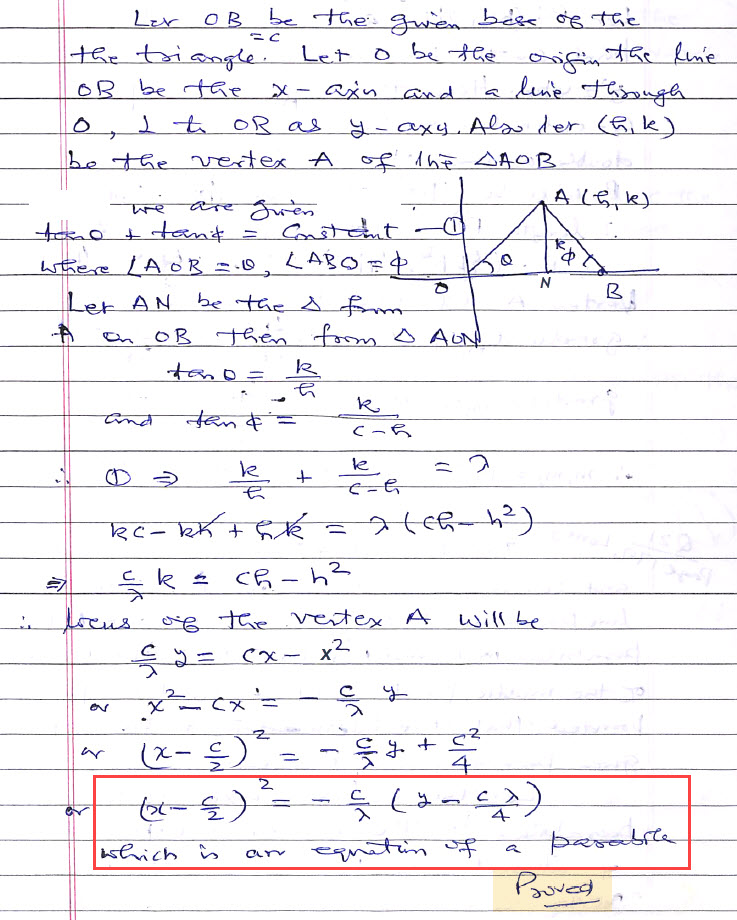 Let OB be the given base of the
= c
the triangle. Let O be the origin the line
OB be the x - axis and a line through
O, ⊥ to OB as y - axy. Also let (h, k)
be the vertex A of the △AOB
we are given
tanθ + tanϕ = Constant — ①
where ∠AOB = θ, ∠ABO = ϕ
A (h, k)
θ
k
ϕ
O
N
B
Let AN be the △ from
A on OB then from △ AON
tan θ = k/h
and tan ϕ = k/(c-h)
∴ ① ⇒ k/h + k/(c-h) = λ
kc - kh + hk = λ (ch - h²)
⇒ c/λ k = ch - h²
∴ locus of the vertex A will be
c/λ y = cx - x².
or x² - cx = - c/λ y
or (x - c/2)² = - c/λ y + c²/4
or (x - c/2)² = - c/λ (y - cλ/4)
which is an equation of a parabola
Proved